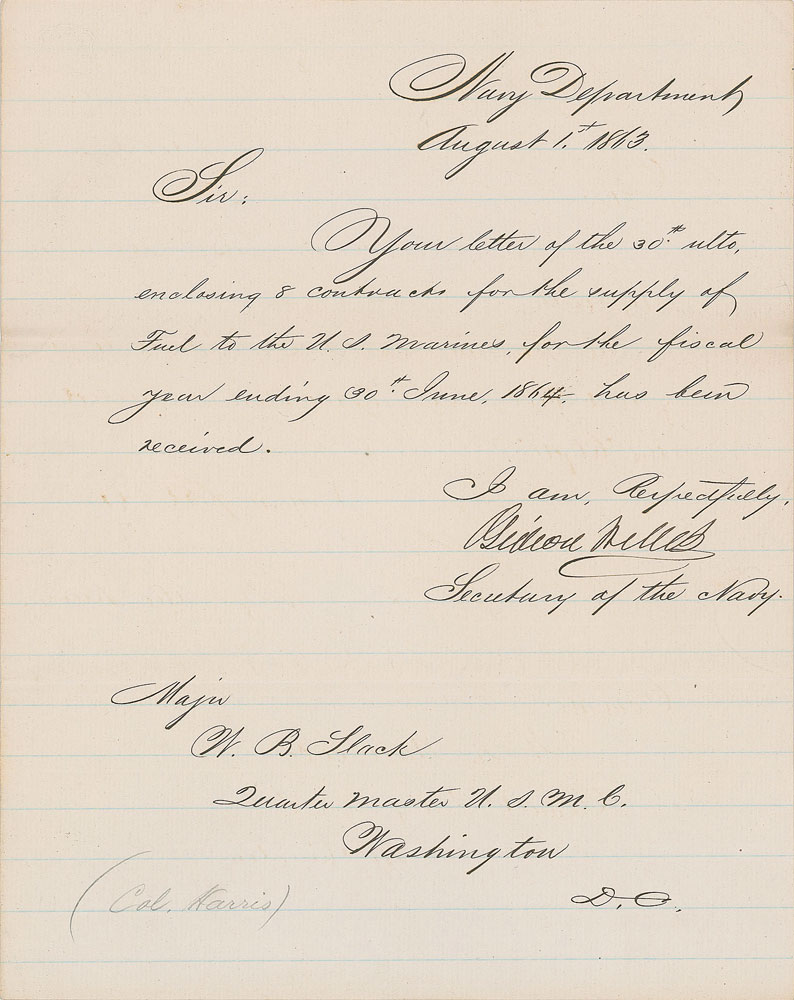 Navy Department
August 1.st 1863.
Sir:
Your letter of the 30.th ulto,
enclosing 8 contracts for the supply of
Fuel to the U. S. Marines, for the fiscal
year ending 30.th June, 1864, has been
received.
I am, Respectfully,
Gideon Welles
Secretary of the Navy.
Major
W. B. Slack
Quarter Master U. S. M. C.
Washington
D. C.
(Col. Harris)